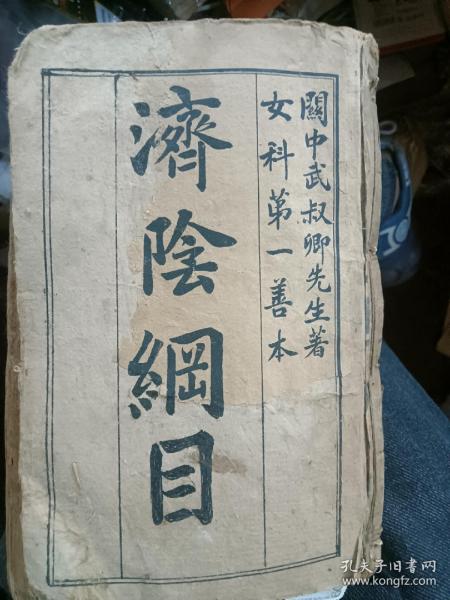 關中武叔卿先生著
女科第一善本
濟陰綱目
孔夫子旧書网
www.kongfz.com